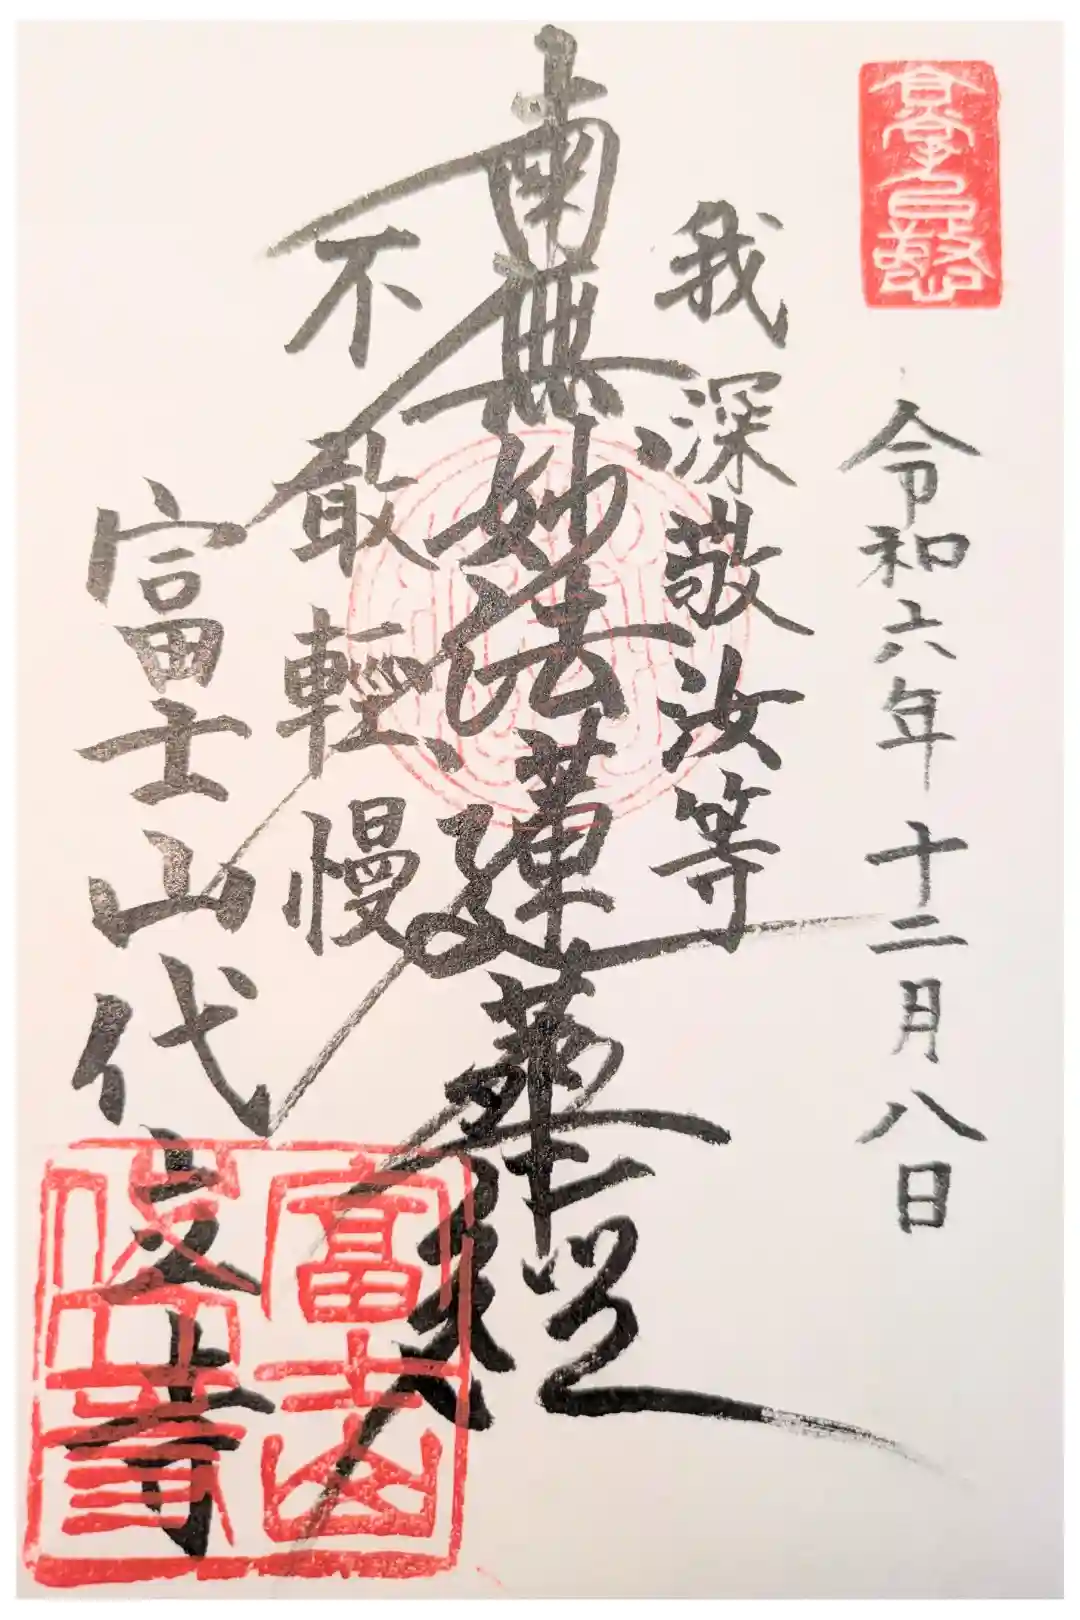 令和六年十二月八日
我深敬汝等
南無妙法蓮華經
不敢輕慢
富士山代立寺
富士山
代立寺